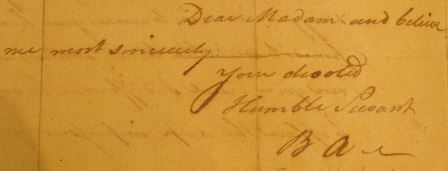 Dear Madam and believe
me most sincerely
Your devoted
Humble Servant
B A